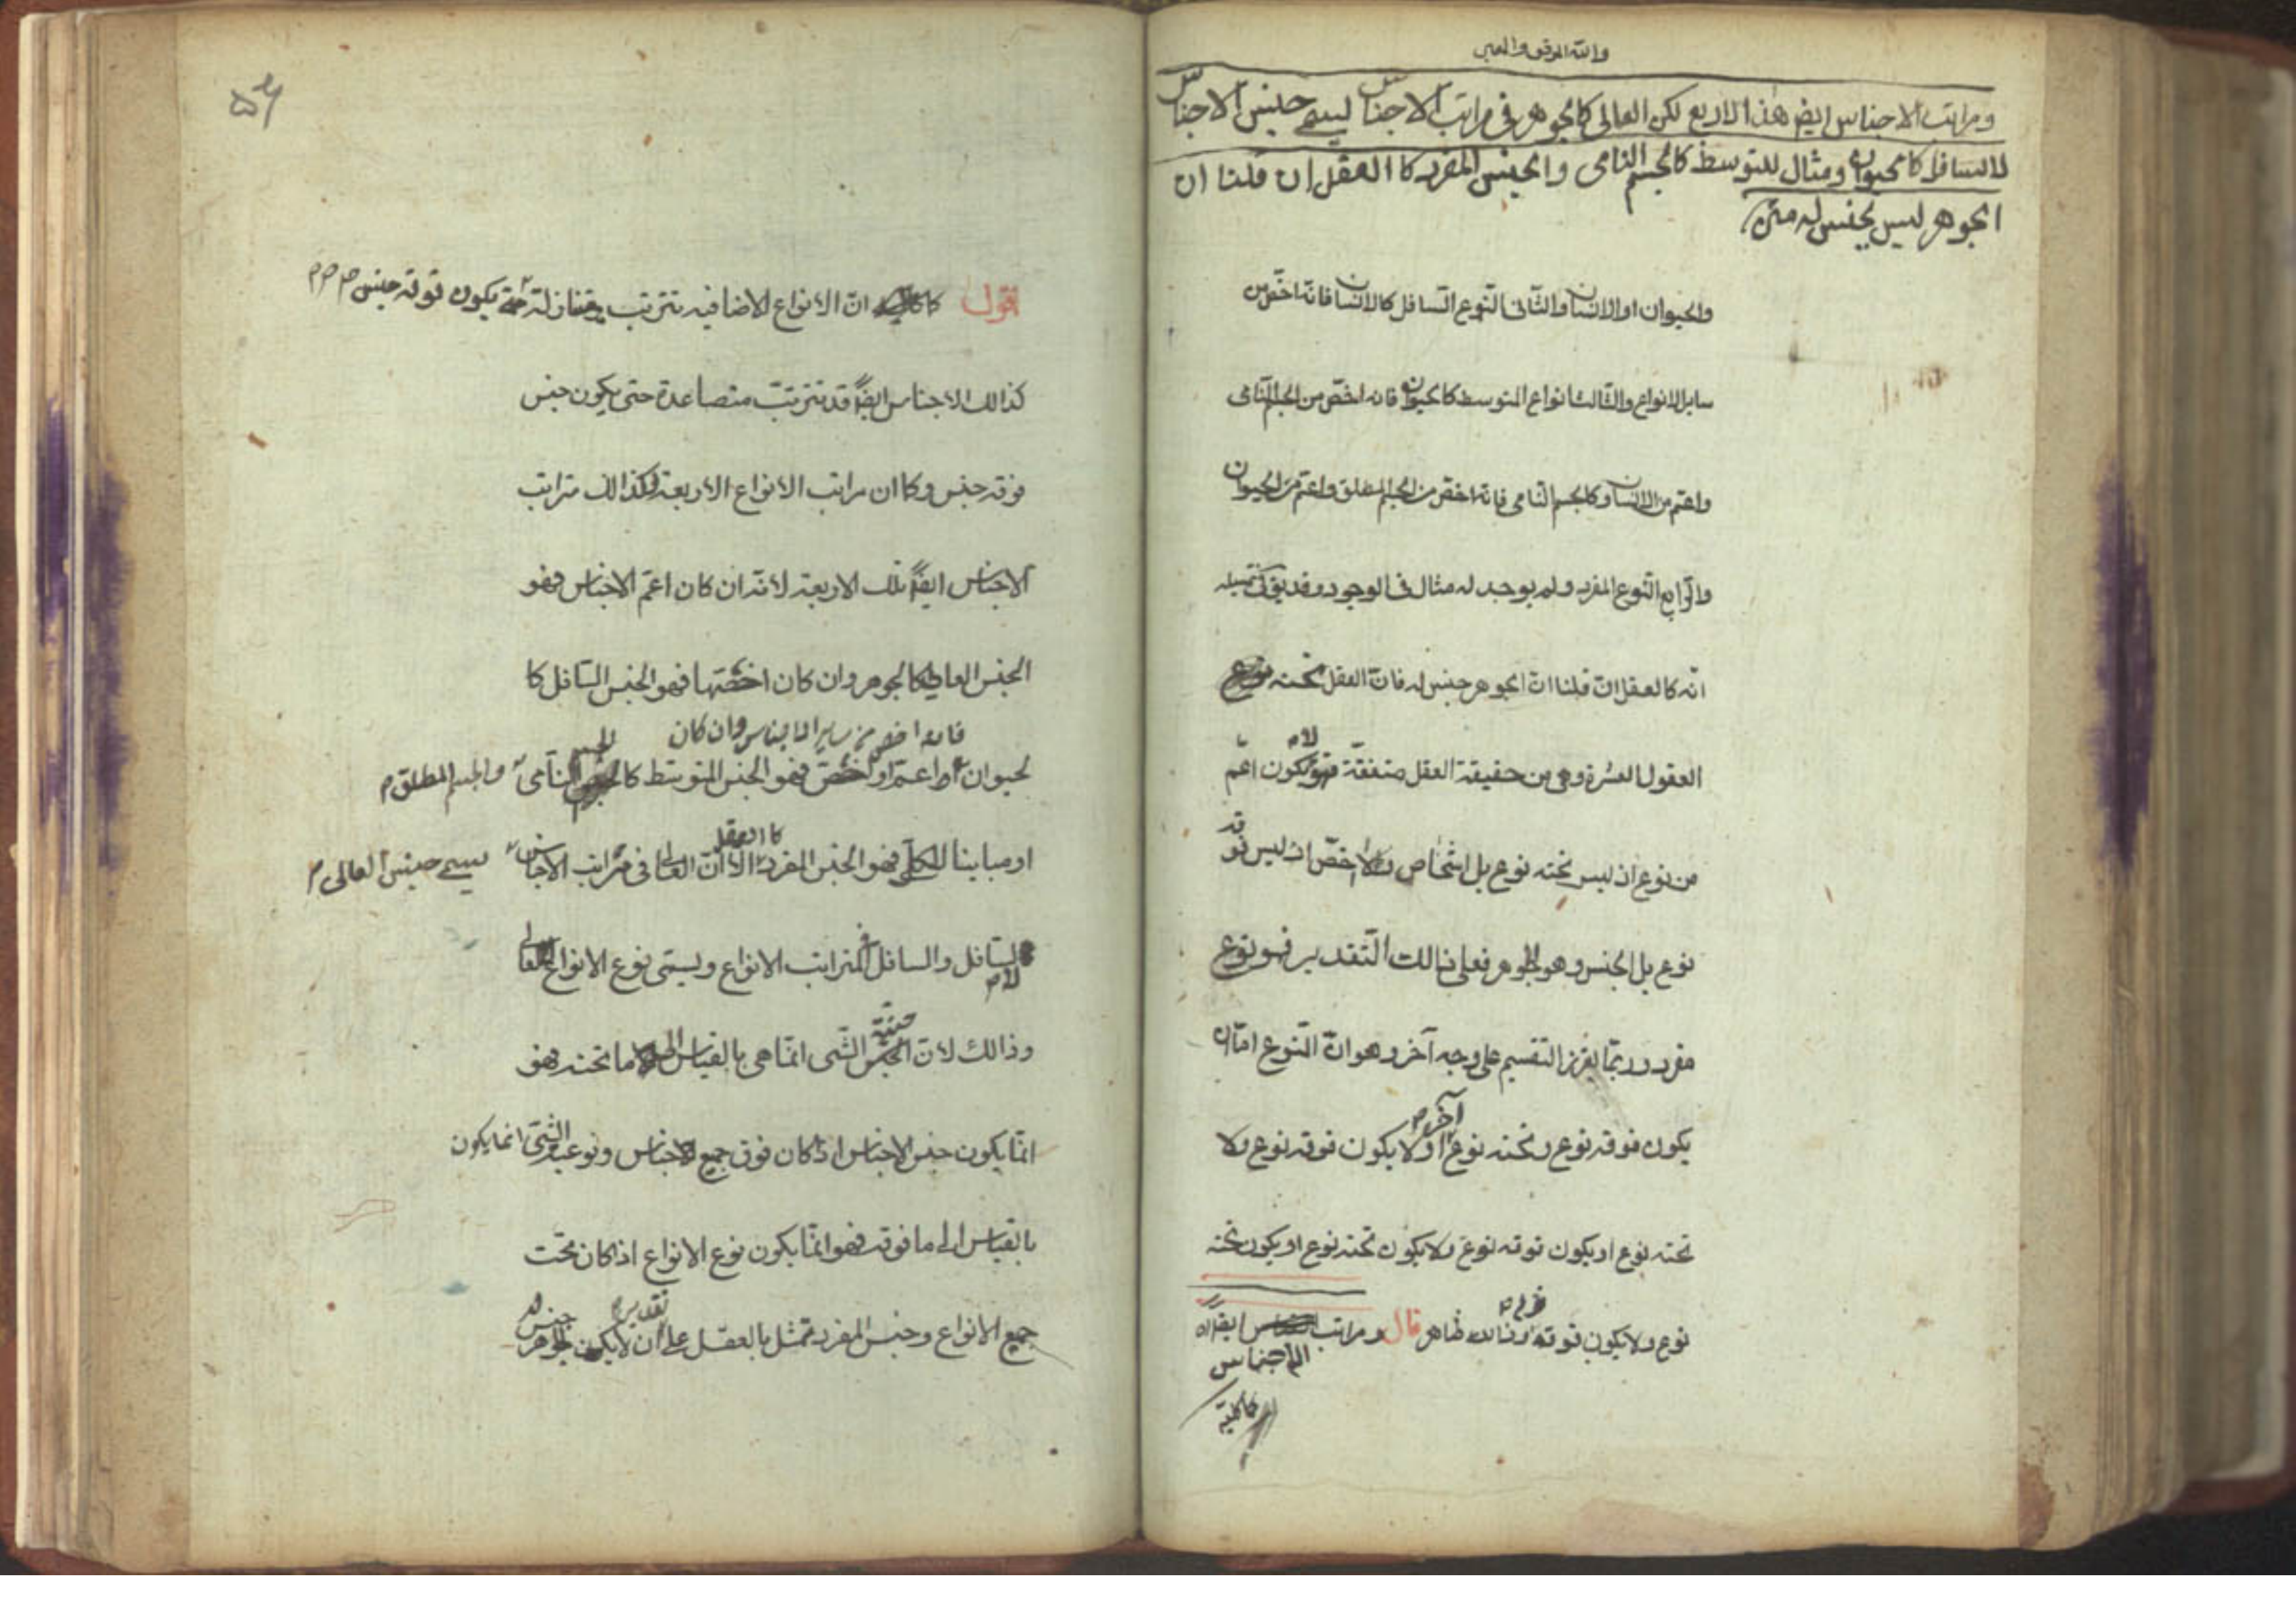 والله الموفق والمعين
ومراتب الاجناس ايضر هذه الاربع لكن العالى كالجوهر فى مراتب الاجناس ليسمى جنس الاجناس
لا السافل كالحيوان ومثال للتوسط كالجسم النامى والجنس المفرد كا العقل ان قلنا ان
الجوهر ليس بجنس له متن
والحيوان او الانسان والثانى النوع السافل كالانسان فانه اخص من
ساير الانواع والثالث انواع المتوسط كالحيوان فانه اخص من الجسم النامى
واعم من الانسان وكالجسم النامى فانه اخص من الجسم المطلق واعم من الحيوان
والرابع النوع المفرد ولم يوجد له مثال فى الوجود وقد يق فى تمثيله
انه كالعقل ان قلنا ان الجوهر جنس له فان العقل تحته
العقول العشرة وهى من حقيقة العقل متفقة فهو لا يكون اعم
من نوع اذ ليس تحته نوع بل اشخاص ولا اخص اذ ليس فوقه
نوع بل الجنس وهو الجوهر فعلى ذالك التقدير فهو نوع
مفرد وربما يقرر التقسيم على وجه آخر وهو ان النوع اما ان
يكون فوقه نوع وتحته نوع آخر او لا يكون فوقه نوع ولا
تحته نوع او يكون فوقه نوع ولا يكون تحته نوع او يكون تحته
نوع ولا يكون فوقه وذالك ظاهر قال ومراتب ايضا
الاجناس
اقول كما ان الانواع الاضافيه تترتب متنازلة حتى يكون فوقه جنس
كذالك الاجناس ايضا قد تترتب متصاعدة حتى يكون جنس
فوقه جنس وكما ان مراتب الانواع الاربعة فكذالك مراتب
الاجناس ايضا تلك الاربعة لانه ان كان اعم الاجناس فهو
الجنس العالى كالجوهر وان كان اخصها فهو الجنس السافل كا
فانه اخص من ساير الاجناس وان كان
لحيوان او اعم او اخص فهو الجنس المتوسط كالجسم النامى والجسم المطلق
كا العقل
او مباينا للكل فهو الجنس المفرد الا ان العالى فى مراتب الاجناس يسمى جنس العالى
لا السافل والسافل فى مراتب الانواع ويسمى نوع الانواع لا العالى
وذالك لان جنسية الشى انما هى بالقياس الى ما تحته فهو
انما يكون جنس الاجناس اذا كان فوق جميع الاجناس ونوعية الشى انما يكون
بالقياس الى ما فوقه فهو انما يكون نوع الانواع اذا كان تحت
جميع الانواع وجنس المفرد تمثل بالعقل على تقدير ان لا يكون الجوهر جنس له